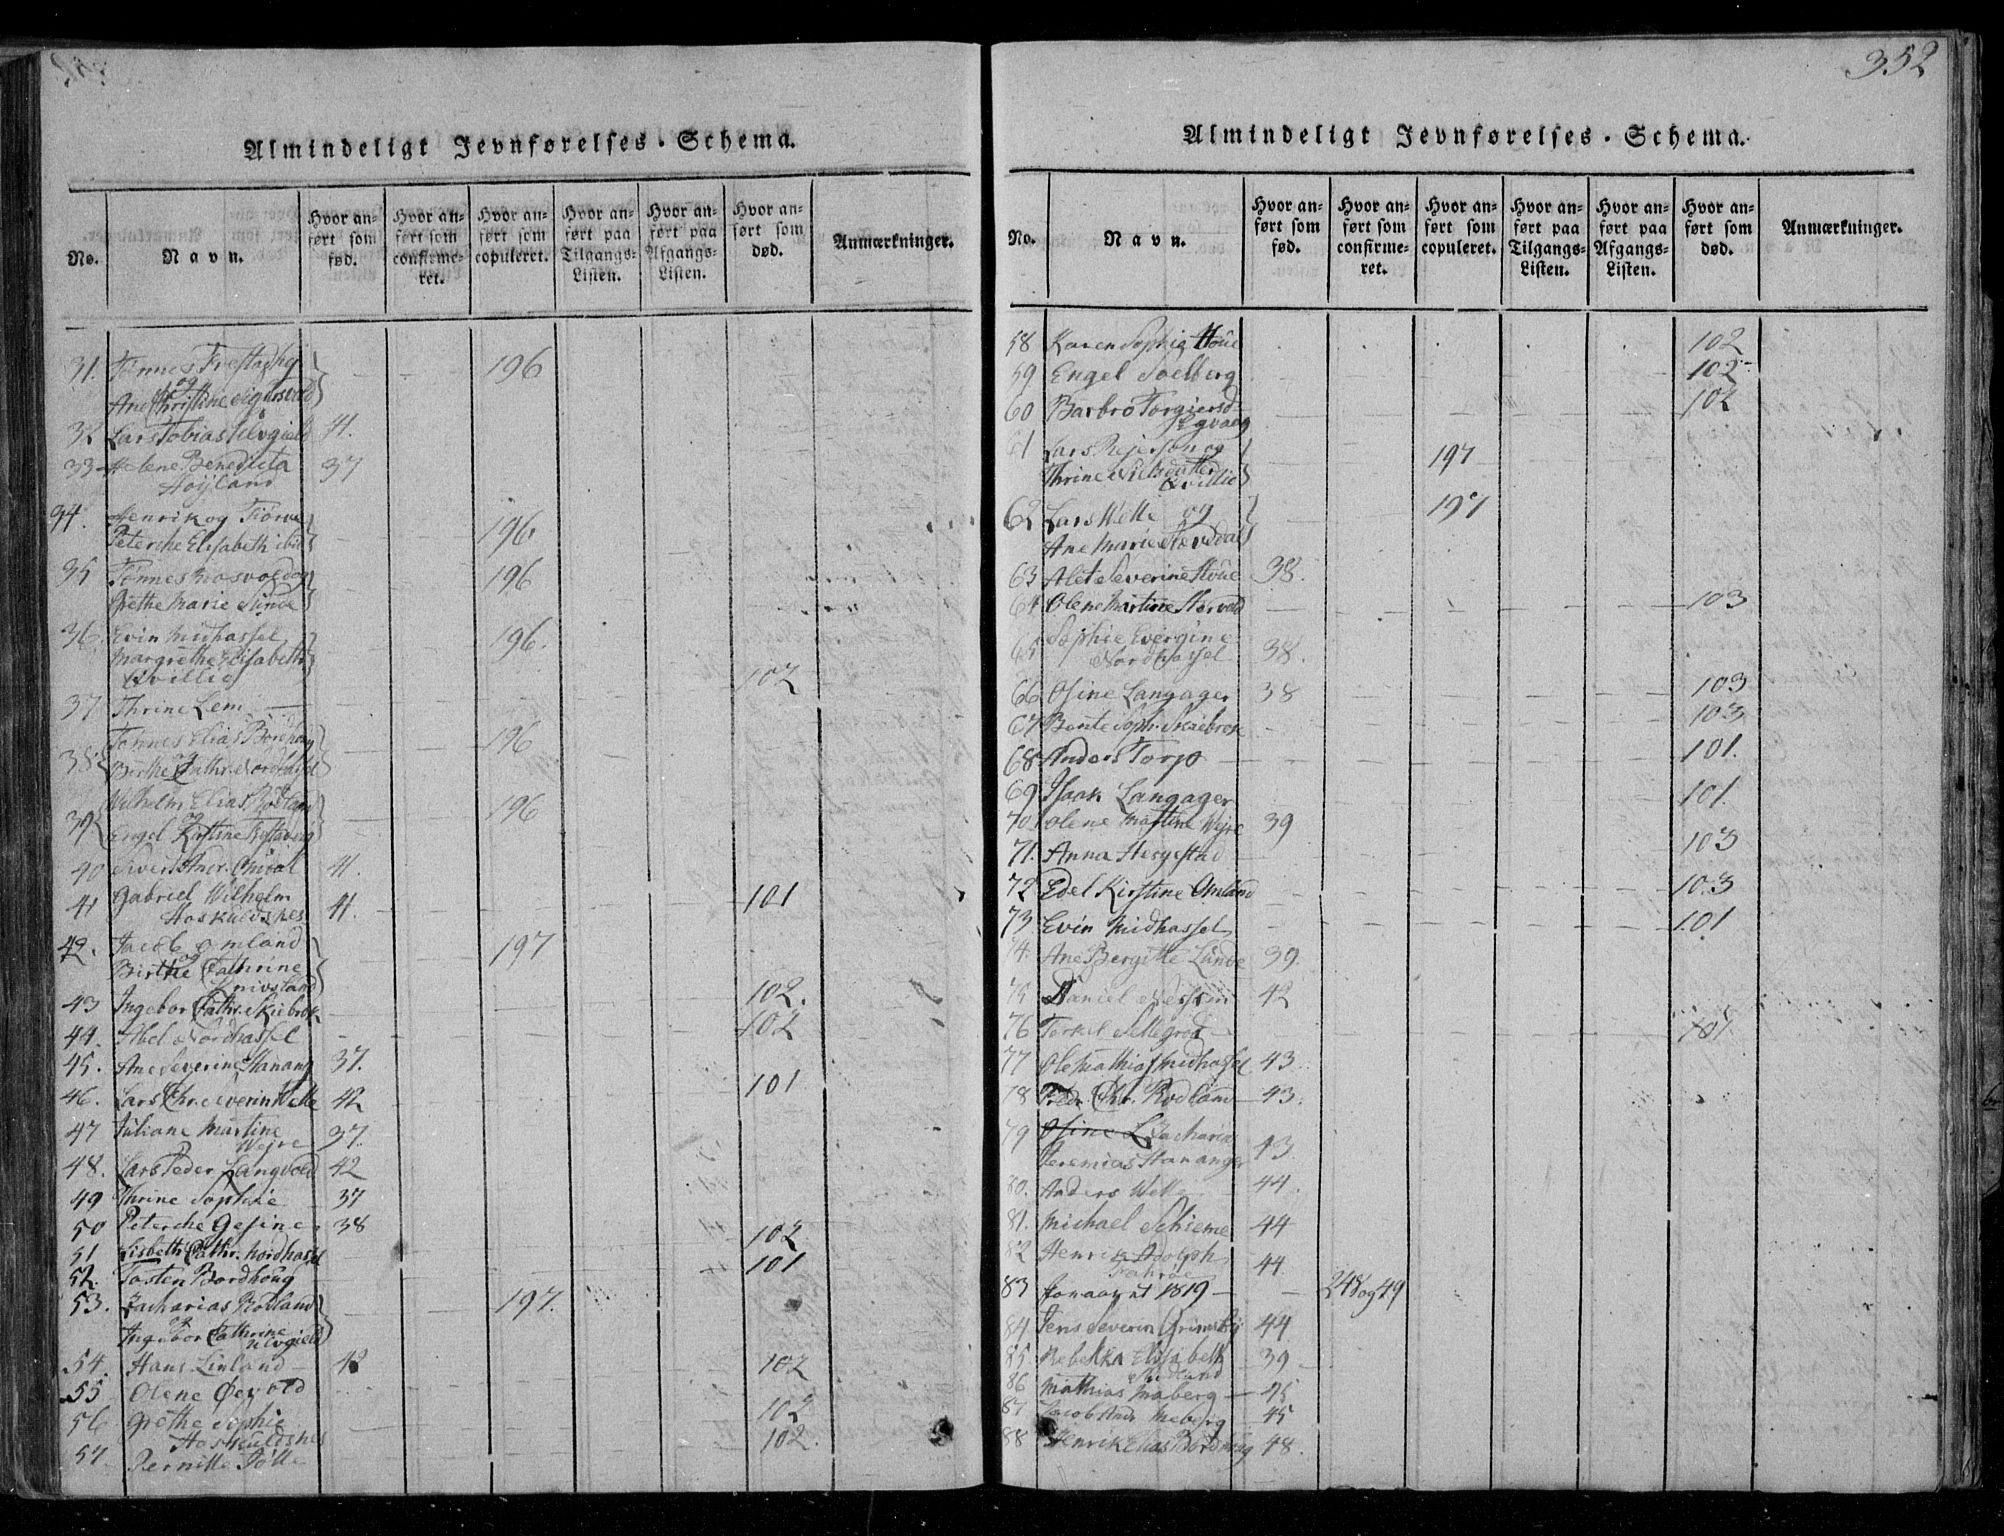 352
Almindeligt Jevnførelses-Schema.
No.
Navn.
Hvor anført som fød.
Hvor anført som confirmeret.
Hvor anført som copuleret.
Hvor anført paa Tilgangs-Listen.
Hvor anført paa Afgangs-Listen.
Hvor anført som død.
Anmærkninger.
31. Tønnes Frestad og
Ane Christine Sigersvold 196
32 Lars Tobias Ulvgield 41.
33 Helene Benedicta
Høyland 37
34. Henrik og
Peterche Elisabeth ibid 196
35 Tønnes Mosvold og
Grethe Marie Sunde 196
36. Evin Midhassel
Margrethe Elisabeth
Qvillio 196.
37 Thrine Lem 102
38 Tønnes Elias Bordhoug
og
Birthe Cathr. Nordhassel 196
39 Wilhelm Elias Rødland
og
Engel Kirstine 196
40 Sivert Andr. Omdal 41.
41 Gabriel Wilhelm
Hoskuldsnes 41. 101
42. Jacob Omland
og
Birthe Cathrine 197
43 Ingebor Cathr. Skiebrok 102.
44. Abel Nordhassel 102
45. Ane Severine Hanang 37.
46. Lars Chr. Severin Welle 42 101
47 Juliane Martine
Vejre 37.
48. Lars Peder Langvold 42
49 Thrine Sophie 37
50 Peterche Gesine 38
51 Lisbeth Cathr. Nordhassel 102
52. Tosten Bordhoug 101
53. Zacharias Rødland
og
Ingebor Cathrine
Ulvgield 197.
54. Hans Linland 42 102
55 Olene
56 Grethe Sophie
Hoskuldsnes 102
57. Pernille 102.
Almindeligt Jevnførelses-Schema.
No.
Navn.
Hvor anført som fød.
Hvor anført som confirmeret.
Hvor anført som copuleret.
Hvor anført paa Tilgangs-Listen.
Hvor anført paa Afgangs-Listen.
Hvor anført som død.
Anmærkninger.
58 Karen Sophie Houe 102
59 Engel Soelberg 102
60 Barbro Torgiersd. 102
61 Lars Rejerson og
Thrine Nielsdatter
Qvillio 197
62 Lars Welle og
Ane Marie 197
63 Alet Severine Houe 38.
64 Olene Martine 103
65 Sophie Evergine
Nordhassel 38.
66 Osine Langager 38 103
67 Bente Soph. Skiebrok 103
68 Anders Torp 101.
69 Isaak Langager 101.
70 Olene Martine Vejre 39
71. Anna Heskestad 103
72 Edel Kirstine Omland 103
73 Evin Midhassel 101
74. Ane Bergitte Lunde 39.
75 Daniel 42
76 Torkel 101
77 Ole Mathias Midhassel 43.
78 Fredr. Chr. Rødland 43.
79 Osine L Zacharias
Jeremias Hananger 43.
80. Anders Welle 44.
81. Michael 44
82 Henrik Adolph
44.
83 Jonaar 1819 248 og 49
84. Jens Severin 44
85. Rebekka Elisabeth
39
86 Mathias Maberg 45
87 Jacob Andr. Meberg 45
88 Henrik Elias Bordhoug 48.